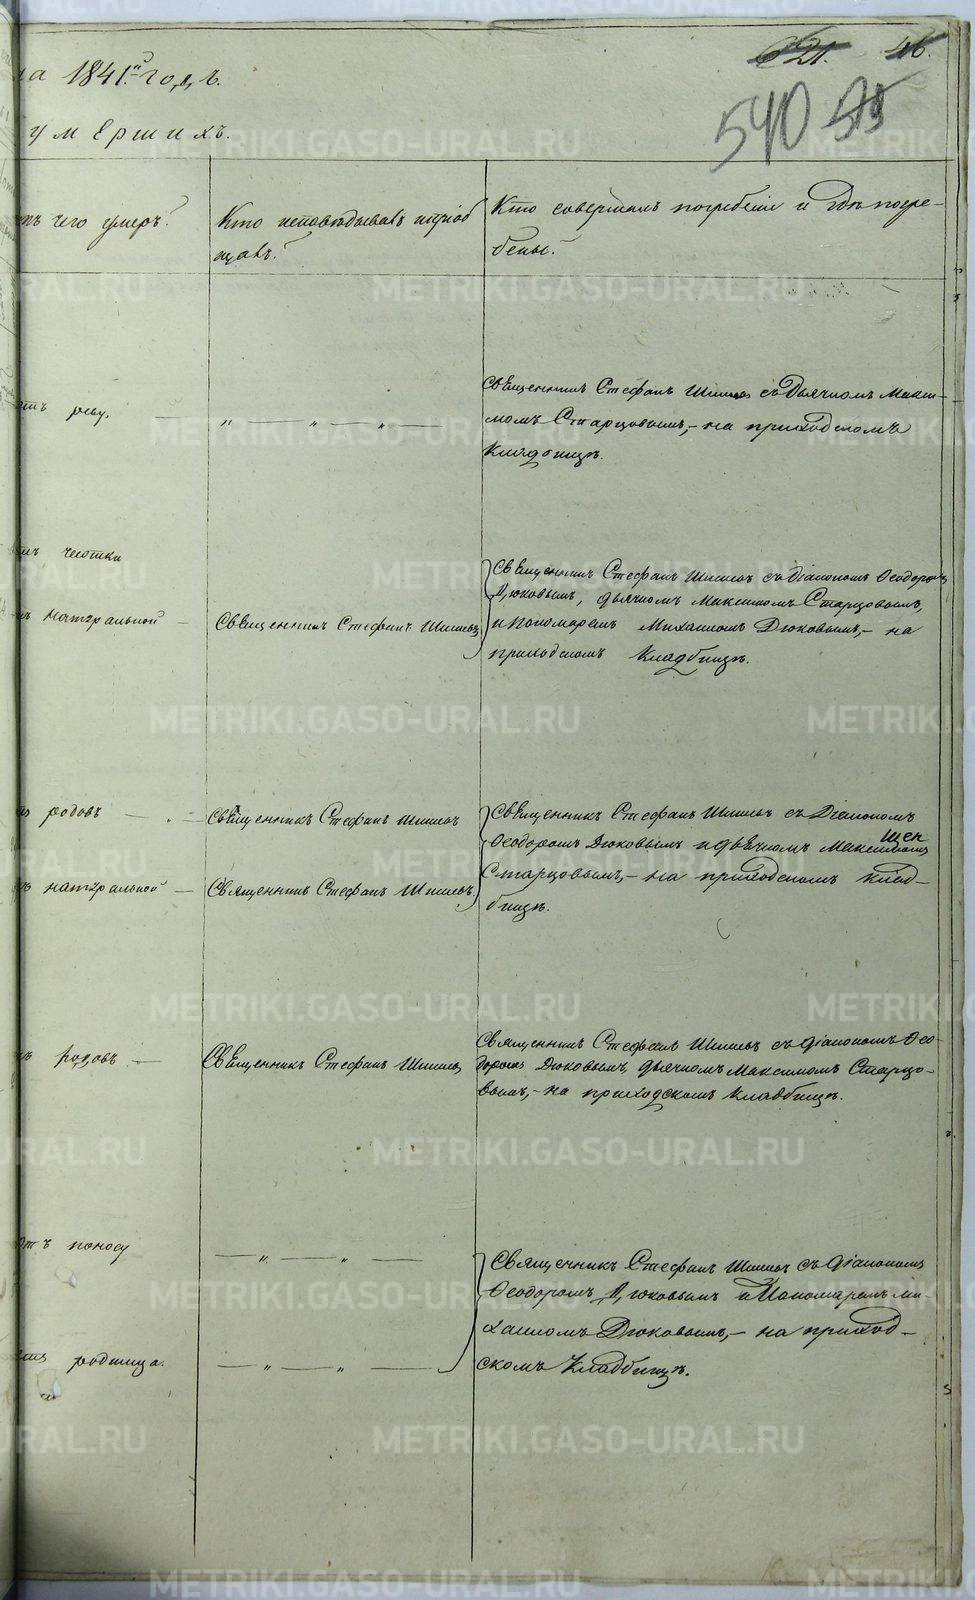 на 1841й годъ.
621. 46.
умершихъ.
540 515
отъ чего умеръ?
Кто исповѣдывалъ и пріоб
щалъ?
Кто совершалъ погребеніе и гдѣ погре-
бены.
отъ реву.
Священникъ Стефанъ Шишевъ съ Дьячкомъ Макси-
момъ Старцовымъ,- на приходскомъ
Кладбищѣ.
отъ чесотки
отъ натуральной
Священникъ Стефанъ Шишевъ
Священникъ Стефанъ Шишевъ съ Діакономъ Ѳеодоромъ
Дюковымъ, дьячкомъ Максимомъ Старцовымъ,
и пономаремъ Михаиломъ Дюковымъ,- на
приходскомъ Кладбищѣ.
отъ родовъ
Священникъ Стефанъ Шишевъ
отъ натуральной
Священникъ Стефанъ Шишевъ,
Священникъ Стефанъ Шишевъ съ Діакономъ
Ѳеодоромъ Дюковымъ и дьячкомъ Максимомъ
Старцовымъ,- на приходскомъ клад-
бищѣ.
отъ родовъ
Священникъ Стефанъ Шишевъ
Священникъ Стефанъ Шишевъ съ діакономъ Ѳео-
доромъ Дюковымъ, дьячкомъ Максимомъ Старцо-
вымъ,- на приходскомъ кладбищѣ.
отъ поносу
отъ родимца.
Священникъ Стефанъ Шишевъ съ діакономъ
Ѳеодоромъ Дюковымъ и Пономаремъ Ми-
хаиломъ Дюковымъ,- на приход-
скомъ Кладбищѣ.
METRIKI.GASO-URAL.RU